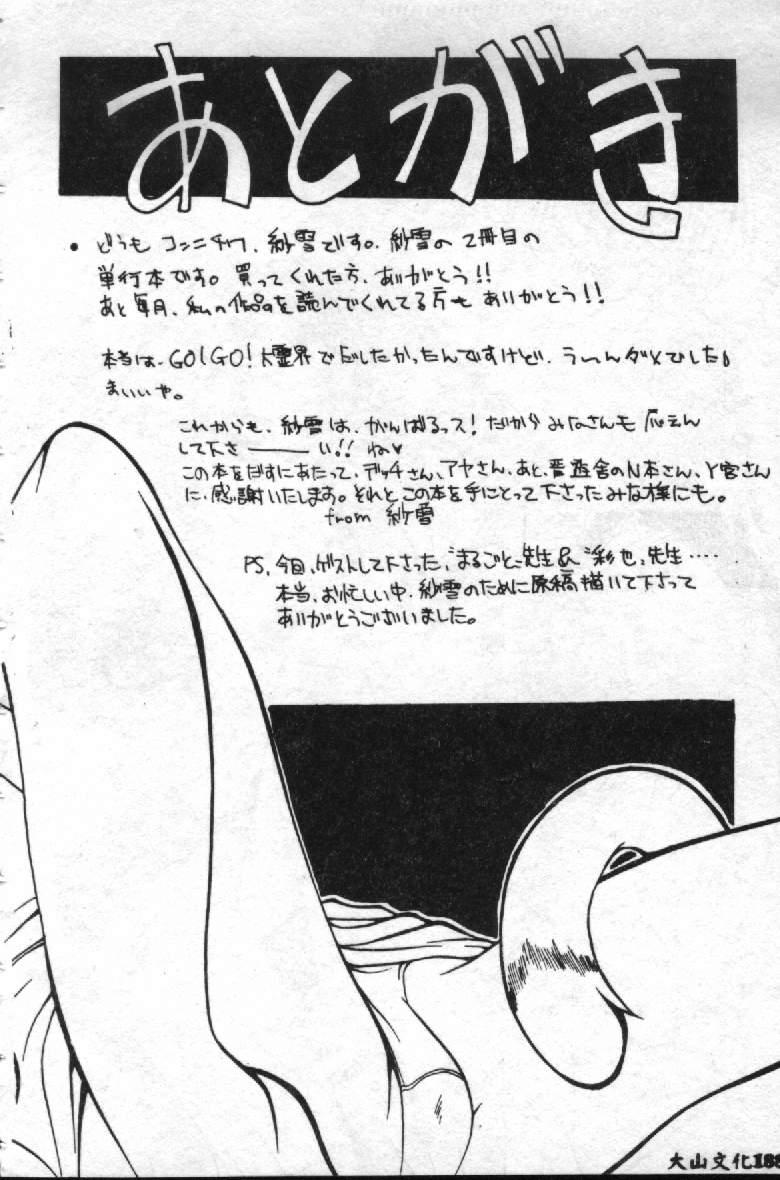 あとがき
• どうも コンニチワ、紗雪です。紗雪の 2冊目の
単行本です。買ってくれた方、ありがとう!!
あと毎月、私の作品を読んでくれてる方も ありがとう!!
本当は、GO!GO!大霊界でだしたかったんですけど、う〜んダメでした。
まぁいいや。
これからも、紗雪は、がんばるっス!だから みなさんも 応えん
して下さ――い!! ね♥
この本をだすにあたって、デッチさん、アヤさん、あと、晋遊舎のN本さん、Y宮さん
に、感謝いたします。それと この本を手にとって下さった みな様にも。
from 紗雪
PS. 今回、ゲストして下さった、“まるごと„先生&“彩也„先生‥‥
本当、お忙しい中、紗雪のために原稿描いて下さって
ありがとうございました。
大山文化